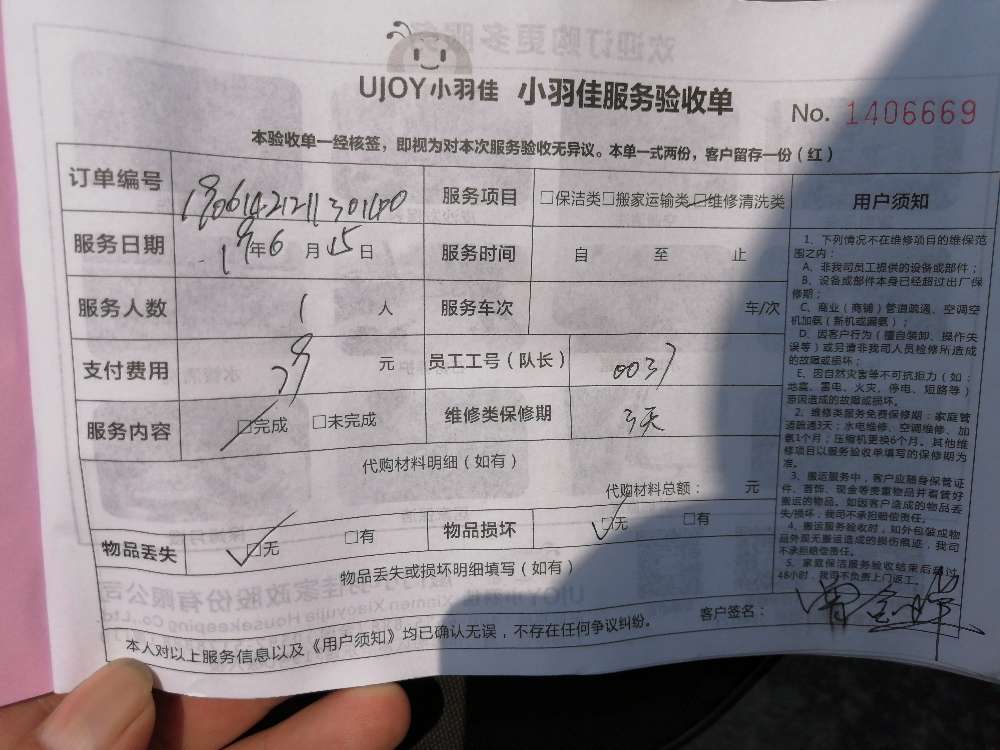 UJOY小羽佳 小羽佳服务验收单
No. 1406669
本验收单一经核签，即视为对本次服务验收无异议。本单一式两份，客户留存一份（红）
订单编号 服务项目 □保洁类□搬家运输类□维修清洗类 用户须知
服务日期 19年6月15日 服务时间 自 至 止
服务人数 1 人 服务车次 车/次
支付费用 元 员工工号（队长） 0037
服务内容 □完成 □未完成 维修类保修期 3天
代购材料明细（如有）
代购材料总额： 元
物品丢失 □无 □有 物品损坏 □无 □有
物品丢失或损坏明细填写（如有）
客户签名：
本人对以上服务信息以及《用户须知》均已确认无误，不存在任何争议纠纷。
1、下列情况不在维修项目的维保范
围之内：
A、非我司员工提供的设备或部件；
B、设备或部件本身已经超过出厂保
修期；
C、商业（商铺）管道疏通、空调空
机加氨（新机或漏氨）；
D、因客户行为（擅自装卸、操作失
误等）或另请非我司人员检修所造成
的故障或损坏；
E、因自然灾害等不可抗拒力（如：
地震、雷电、火灾、停电、短路等）
原因造成的故障或损坏。
2、维修类服务免费保修期：家庭管
道疏通3天；水电维修、空调维修、加
氨1个月；压缩机更换6个月。其他维
修项目以服务验收单填写的保修期为
准。
3、搬运服务中，客户应随身保管证
件、首饰、现金等贵重物品并看管好
搬运的物品。如因客户造成的物品丢
失/损坏，我司不承担赔偿责任。
4、搬运服务验收时，如外包装或物
品外观无搬运造成的损伤痕迹，我司
不承担赔偿责任。
5、家庭保洁服务验收结束后超过
48小时，我司不负责上门返工。